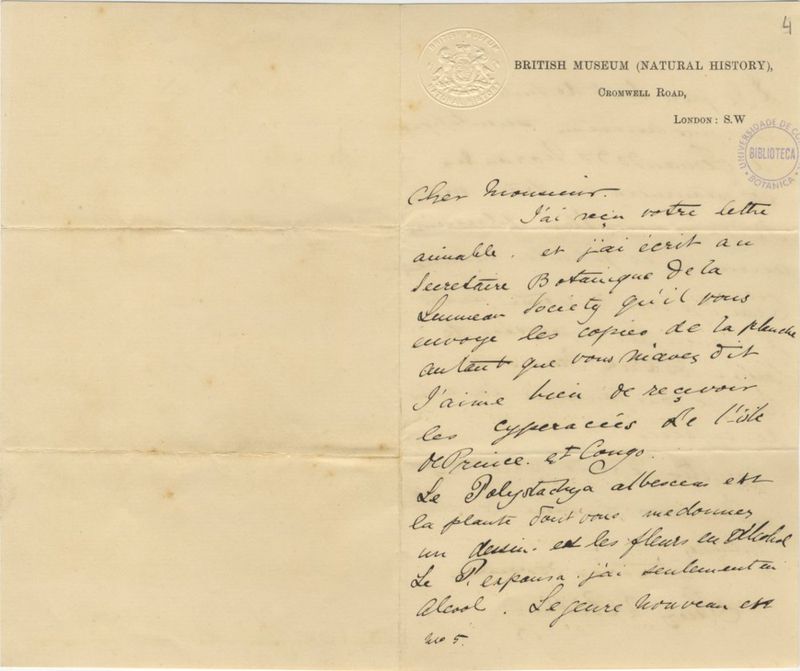 4
BRITISH MUSEUM
NATURAL HISTORY
BRITISH MUSEUM (NATURAL HISTORY),
CROMWELL ROAD,
LONDON: S.W
UNIVERSIDADE DE CO
BIBLIOTECA
BOTANICA
Cher Monsieur.
J'ai reçu votre lettre
aimable. et j'ai écrit au
Secretaire Botanique de la
Linnean Society qu'il vous
envoye les copies de la planche
autant que vous m'avez dit
J'aime bien de reçevoir
les cyperacées de l'isle
de Prince. et Congo.
Le Polystachya albescens est
la plante dont vous me donnez
un dessin. et les fleurs en Alcohol
Le P. expansa j'ai seulement en
Alcool. Le genre nouveau est
no 5.